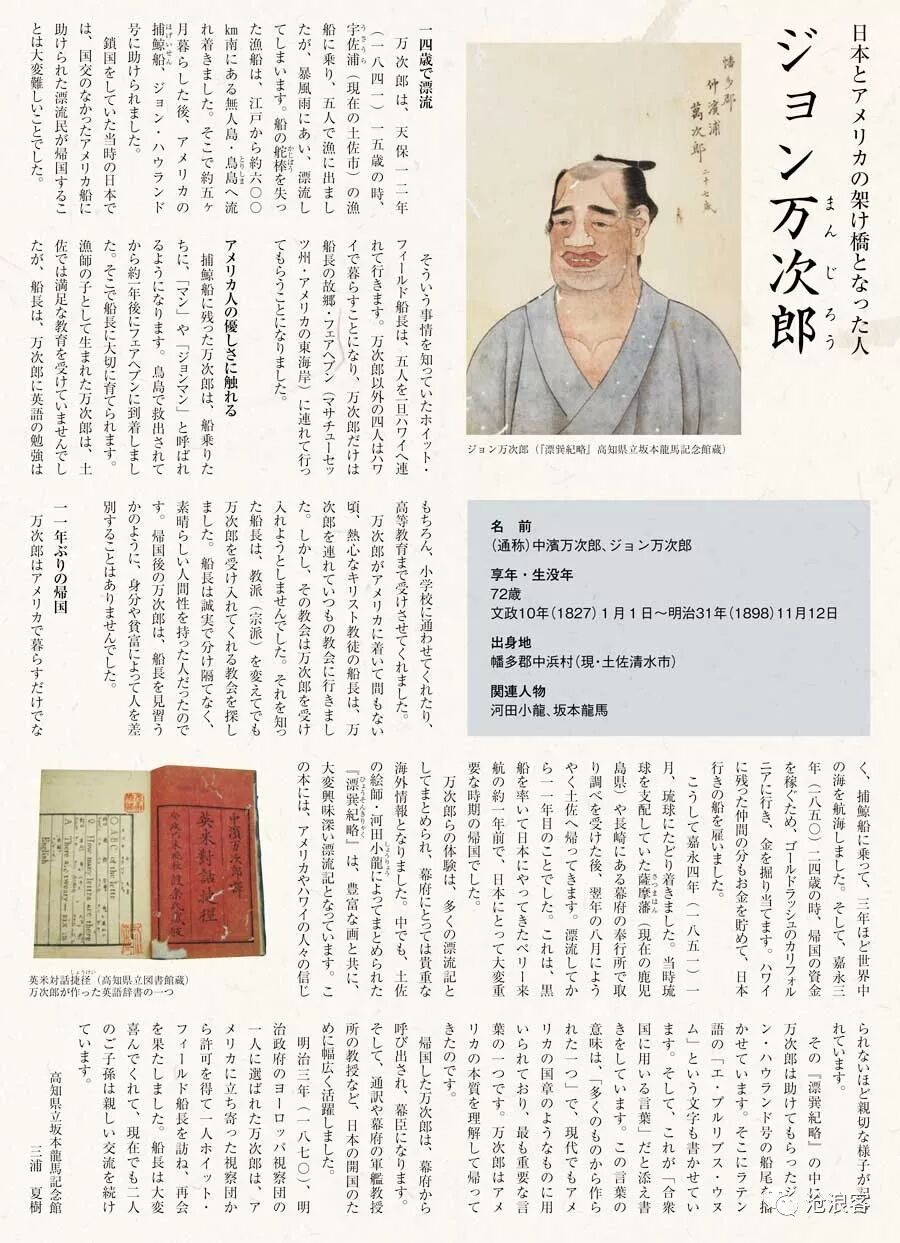 日本とアメリカの架け橋となった人
ジョン万次郎
まんじろう
幡多郡
仲濱浦
萬次郎
二十七歳
ジョン万次郎(『漂巽紀略』高知県立坂本龍馬記念館蔵)
一四歳で漂流
万次郎は、天保一二年
(一八四一)一五歳の時、
宇佐浦(現在の土佐市)の漁
船に乗り、五人で漁に出まし
たが、暴風雨にあい、漂流し
てしまいます。船の舵棒を失っ
た漁船は、江戸から約六〇〇
㎞南にある無人島・鳥島へ流
れ着きました。そこで約五ヶ
月暮らした後、アメリカの
捕鯨船、ジョン・ハウランド
号に助けられました。
鎖国をしていた当時の日本で
は、国交のなかったアメリカ船に
助けられた漂流民が帰国するこ
とは大変難しいことでした。
そういう事情を知っていたホイット・
フィールド船長は、五人を一旦ハワイへ連
れて行きます。万次郎以外の四人はハワ
イで暮らすことになり、万次郎だけは
船長の故郷・フェアヘブン(マサチューセッ
ツ州・アメリカの東海岸)に連れて行っ
てもらうことになりました。
アメリカ人の優しさに触れる
捕鯨船に残った万次郎は、船乗りた
ちに、「マン」や「ジョンマン」と呼ばれ
るようになります。鳥島で救出されて
から約二年後にフェアヘブンに到着しまし
た。そこで船長に大切に育てられます。
漁師の子として生まれた万次郎は、土
佐では満足な教育を受けていませんでし
たが、船長は、万次郎に英語の勉強は
もちろん、小学校に通わせてくれたり、
高等教育まで受けさせてくれました。
万次郎がアメリカに着いて間もない
頃、熱心なキリスト教徒の船長は、万
次郎を連れていつもの教会に行きまし
た。しかし、その教会は万次郎を受け
入れようとしませんでした。それを知っ
た船長は、教派(宗派)を変えてでも
万次郎を受け入れてくれる教会を探し
ました。船長は誠実で分け隔てなく、
素晴らしい人間性を持った人だったので
す。帰国後の万次郎は、船長を見習う
かのように、身分や貧富によって人を差
別することはありませんでした。
一一年ぶりの帰国
万次郎はアメリカで暮らすだけでな
名 前
(通称)中濱万次郎、ジョン万次郎
享年・生没年
72歳
文政10年(1827)1月1日~明治31年(1898)11月12日
出身地
幡多郡中浜村(現・土佐清水市)
関連人物
河田小龍、坂本龍馬
く、捕鯨船に乗って、三年ほど世界中
の海を航海しました。そして、嘉永三
年(一八五〇)二四歳の時、帰国の資金
を稼ぐため、ゴールドラッシュのカリフォル
ニアに行き、金を掘り当てます。ハワイ
に残った仲間の分もお金を貯めて、日本
行きの船を雇いました。
こうして嘉永四年(一八五一)一
月、琉球にたどり着きました。当時琉
球を支配していた薩摩藩(現在の鹿児
島県)や長崎にある幕府の奉行所で取
り調べを受けた後、翌年の八月によう
やく土佐へ帰ってきます。漂流してか
ら一一年目のことでした。これは、黒
船を率いて日本にやってきたペリー来
航の約一年前で、日本にとって大変重
要な時期の帰国でした。
万次郎らの体験は、多くの漂流記と
してまとめられ、幕府にとっては貴重な
海外情報となりました。中でも、土佐
の絵師・河田小龍によってまとめられた
『漂巽紀略』は、豊富な画と共に、
大変興味深い漂流記となっています。こ
の本には、アメリカやハワイの人々の信じ
中濱万次郎譯
英米對話捷徑
How many letters are there
There are twenty-six
English
英米対話捷径(高知県立図書館蔵)
万次郎が作った英語辞書の一つ
られないほど親切な様子が記
れています。
その『漂巽紀略』の中に
万次郎は助けてもらったジ
ン・ハウランド号の船尾を描
かせています。そこにラテン
語の「エ・プルリブス・ウヌ
ム」という文字も書かせてい
ます。そして、これが「合衆
国に用いる言葉」だと添え書
きをしています。この言葉の
意味は、「多くのものから作ら
れた一つ」で、現代でもアメ
リカの国章のようなものに用
いられており、最も重要な言
葉の一つです。万次郎はアメ
リカの本質を理解して帰って
きたのです。
帰国した万次郎は、幕府から
呼び出され、幕臣になります。
そして、通訳や幕府の軍艦教授
所の教授など、日本の開国のた
めに幅広く活躍しました。
明治三年(一八七〇)、明
治政府のヨーロッパ視察団の
一人に選ばれた万次郎は、ア
メリカに立ち寄った視察団か
ら許可を得て一人ホイット・
フィールド船長を訪ね、再会
を果たしました。船長は大変
喜んでくれて、現在でも二人
のご子孫は親しい交流を続け
ています。
高知県立坂本龍馬記念館
三浦 夏樹
沧浪客